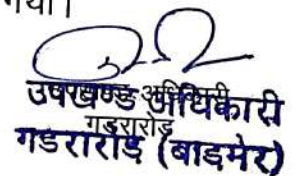 गया।
उपखण्ड अधिकारी
गडरारोड
उपखण्ड अधिकारी
गडरारोड (बाड़मेर)